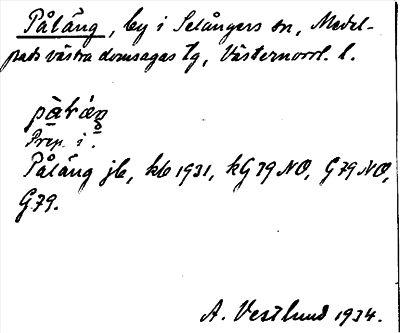 Påläng, by i Selångers sn, Medel-
pads västra domsagas tg, Västernorrl. l.
Prep. i.
Påläng jb, kb 1931, kG 79 NO, G 79 NO,
G 79.
A. Vestlund 1934.